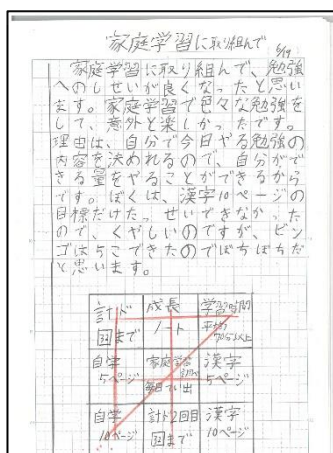 家庭学習に取り組んで
6/19
家庭学習に取り組んで、勉強
へのしせいが良くなったと思い
ます。家庭学習で色々な勉強を
して、意外と楽しかったです。
理由は、自分で今日やる勉強の
内容を決めれるので、自分がで
きる量をやることができるから
です。ぼくは、漢字10ページの
目標だけたっせいできなかった
ので、くやしいのですが、ビン
ゴは5こできたのでぼちぼちだ
と思います。
計ド 成長 学習時間
まで ノート 平均
70分以上
自学 家庭学習 漢字
5ページ 毎日てい出 5ページ
自学 計ド2回目 漢字
10ページ まで 10ページ